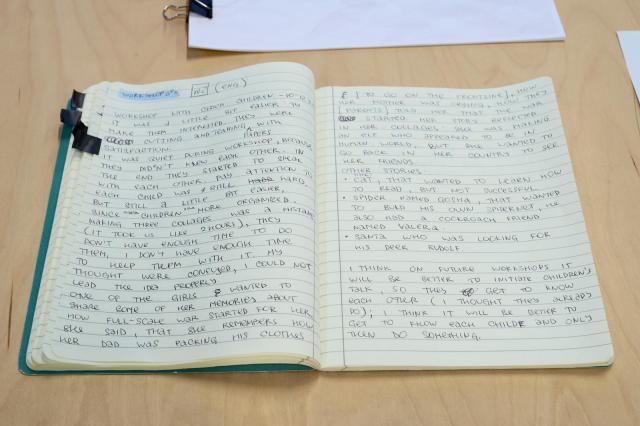 WORKSHOP №2 (ENG)
WORKSHOP WITH OLDER CHILDREN -10-
IT WAS A LITTLE BIT EASIER TO
MAKE THEM INTERESTED, THEY WERE
CUTTING AND TEARING PAPERS WITH
SATISFACTION.
IT WAS QUIET DURING WORKSHOP, BECAUSE
THEY DIDN'T KNEW EACH OTHER. IN
THE END THEY STARTED TO SPEAK
WITH EACH OTHER. PAY ATTENTION TO
EACH CHILD WAS STILL HARD,
BUT STILL A LITTLE BIT EASIER,
SINCE CHILDREN MORE ORGANIZED.
MAKING THREE COLLAGES WAS A MISTAKE
(IT TOOK US LIKE 2 HOURS), THEY
DON'T HAVE ENOUGH TIME TO DO
THEM, I DON'T HAVE ENOUGH TIME
TO HELP THEM WITH IT. MY
THOUGHT WERE CONFUSED, I COULD NOT
LEAD THE IDEA PROPERLY
ONE OF THE GIRLS WANTED TO
SHARE SOME OF HER MEMORIES ABOUT
HOW FULL-SCALE WAR STARTED FOR HER.
SHE SAID, THAT SHE REMEMBERS HOW
HER DAD WAS PACKING HIS CLOTHES
[TO GO ON THE FRONTLINE], HOW
HER MOTHER WAS CRYING, HOW THEY
[PARENTS] TOLD HER THAT THE WAR
STARTED. HER STEPS REFLECTED
IN HER COLLAGES. SHE WAS MAKING
AN ELF WHO APPEARED TO BE IN
HUMAN WORLD, BUT SHE WANTED TO
GO BACK IN HER COUNTRY TO SEE
HER FRIENDS
OTHER STORIES:
• CAT, THAT WANTED TO LEARN HOW
TO READ, BUT NOT SUCCESSFUL
• SPIDER NAMED GOSHA, THAT WANTED
TO BUILD HIS OWN SPIDERNET, HE
ALSO HAD A COCKROACH FRIEND
NAMED VALERA.
• SANTA WHO WAS LOOKING FOR
HIS DEER RUDOLF
I THINK ON FUTURE WORKSHOPS IT
WILL BE BETTER TO INITIATE CHILDREN'S
TALK SO THEY GET TO KNOW
EACH OTHER (I THOUGHT THEY ALREADY
DO); I THINK IT WILL BE BETTER TO
GET TO KNOW EACH CHILD AND ONLY
THEN DO SOMETHING.